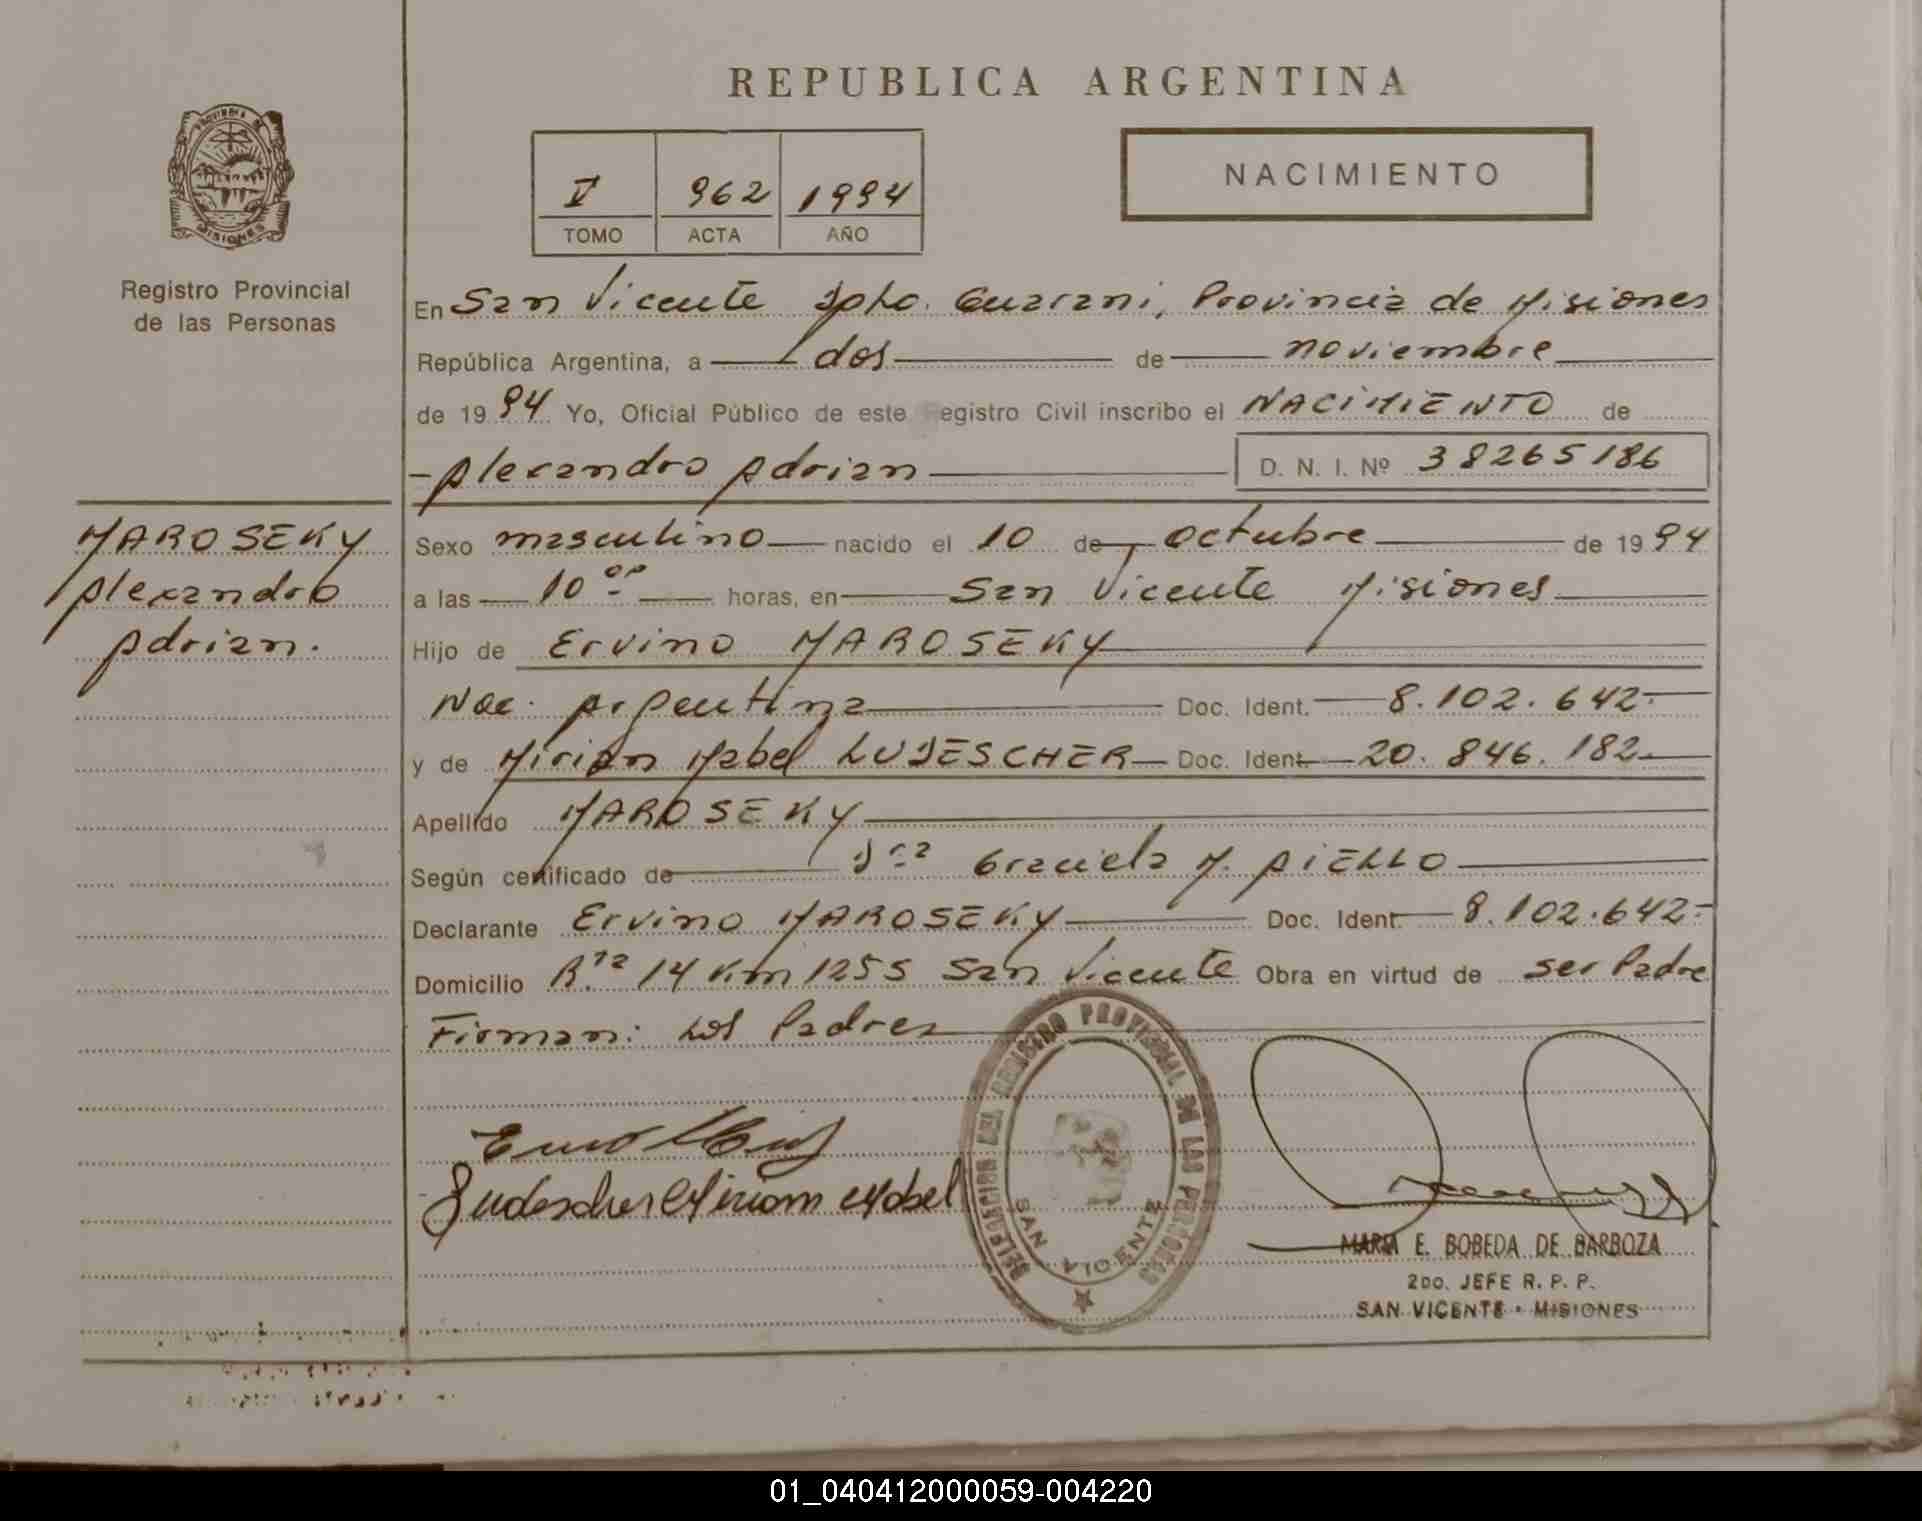 REPUBLICA ARGENTINA
PROVINCIA DE
MISIONES
Registro Provincial
de las Personas
V 962 1994
TOMO ACTA AÑO
NACIMIENTO
En San Vicente Dpto. Guarani, Provincia de Misiones
República Argentina, a dos de noviembre
de 1994 Yo, Oficial Público de este Registro Civil inscribo el NACIMIENTO de
Alexandro Adrian D. N. I. Nº 38265186
MAROSEKY
Alexandro
Adrian.
Sexo masculino nacido el 10 de octubre de 1994
a las 10 00 horas, en San Vicente Misiones
Hijo de Ervino MAROSEKY
Nac. Argentina Doc. Ident. 8.102.642
y de Mirian Mabel LUDESCHER Doc. Ident. 20.846.182
Apellido MAROSEKY
Según certificado de Dra Graciela M. AIELLO
Declarante Ervino MAROSEKY Doc. Ident. 8.102.642
Domicilio R.ta 14 Km 1255 San Vicente Obra en virtud de ser Padre
Firman: Los Padres
Ludescher Miriam Mabel
DELEGACION DEL REGISTRO PROVINCIAL DE LAS PERSONAS
SAN VICENTE
MARIA E. BOBEDA DE BARBOZA
2DO. JEFE R. P. P.
SAN VICENTE - MISIONES
01_040412000059-004220